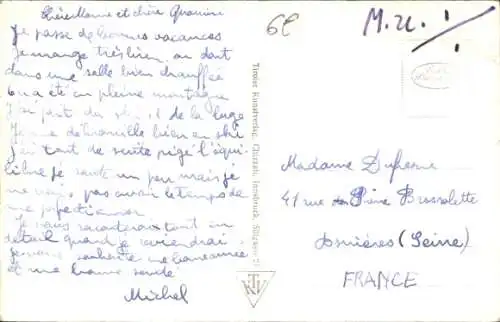 Chère Mame et chère Granine
Je passe de bonnes vacances
Je mange très bien, on dort
dans une salle bien chauffée
On a été en pleine montagne
J'ai fait du ski et de la luge
Je me débrouille bien en ski
j'ai tout de suite pigé l'équi-
libre je saute un peu mais je
ne vais pas avoir le temps de
me perfectionner
Je vous raconterai tout en
détail quand je reviendrai
Je vous souhaite une bonne année
et une bonne santé
Michel
6E
M.U.!
Tiroler Kunstverlag, Chizzali, Innsbruck,
KTV
Madame Dufresne
41 rue Pierre Brossolette
Asnières (Seine)
FRANCE